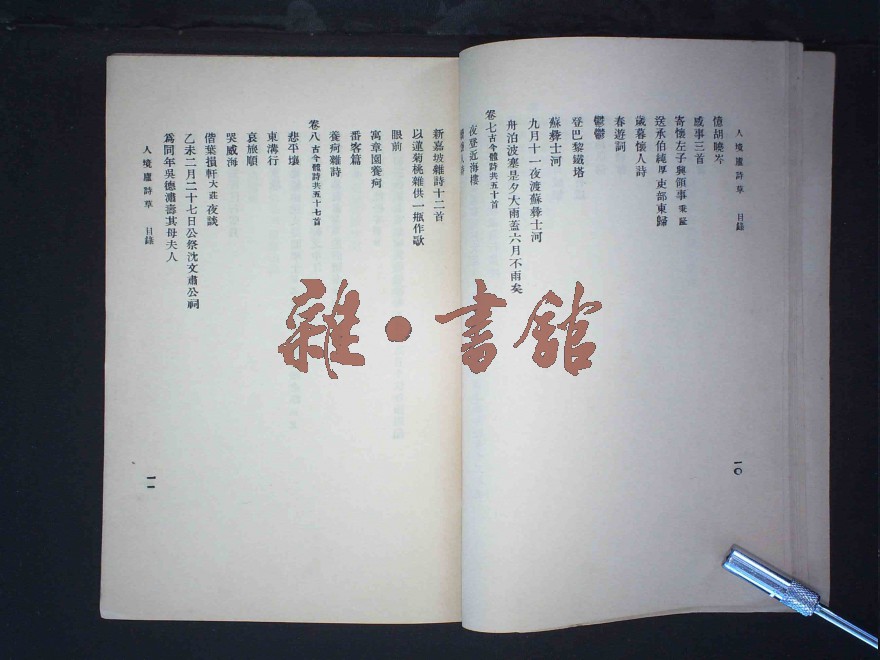 人境廬詩草 目錄
一〇
憶胡曉岑
感事三首
寄懷左子興領事 秉隆
送承伯純厚吏部東歸
歲暮懷人詩
春遊詞
鬱鬱
登巴黎鐵塔
蘇彝士河
九月十一夜渡蘇彝士河
舟泊波塞是夕大雨蓋六月不雨矣
卷七 古今體詩共五十首
夜登近海樓
新嘉坡雜詩十二首
以蓮菊桃雜供一瓶作歌
眼前
寓章園養疴
番客篇
養疴雜詩
卷八 古今體詩共五十七首
悲平壤
東溝行
哀旅順
哭威海
偕葉損軒大莊夜談
乙未二月二十七日公祭沈文肅公祠
爲同年吳德潚壽其母夫人
人境廬詩草 目錄
一一
雜•書館